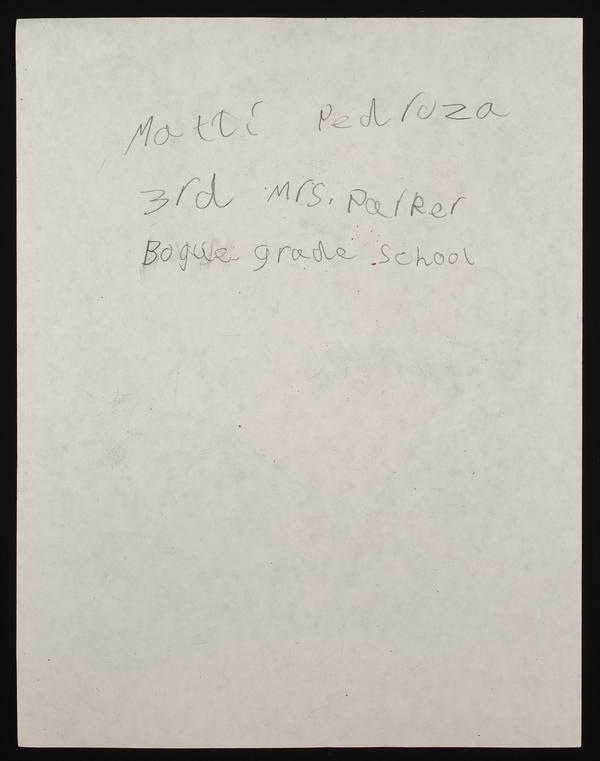 Matti Pedroza
3rd Mrs. Parker
Bogue grade school